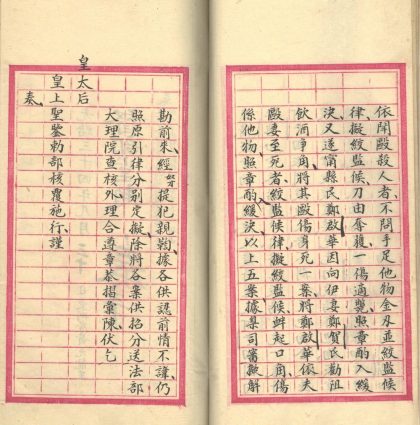 依鬥毆殺人者不問手足他物金刃並絞監候
律擬絞監候刀由奪獲一傷適斃照章酌入緩
決又遂甯縣民鄭啟華因向伊妻鄭賀氏勸阻
飲酒爭角將其毆傷身死一案將鄭啟華依夫
毆妻至死者絞監候律擬絞監候衅起口角傷
係他物照章酌緩決以上五案據臬司審擬解
勘前來經奴才提犯親鞫據各供認前情不諱仍
照原引律分別定擬除將各案供招分送法部
大理院查核外理合遵章恭摺彙陳伏乞
皇太后
皇上聖鑒勅部核覆施行謹
奏